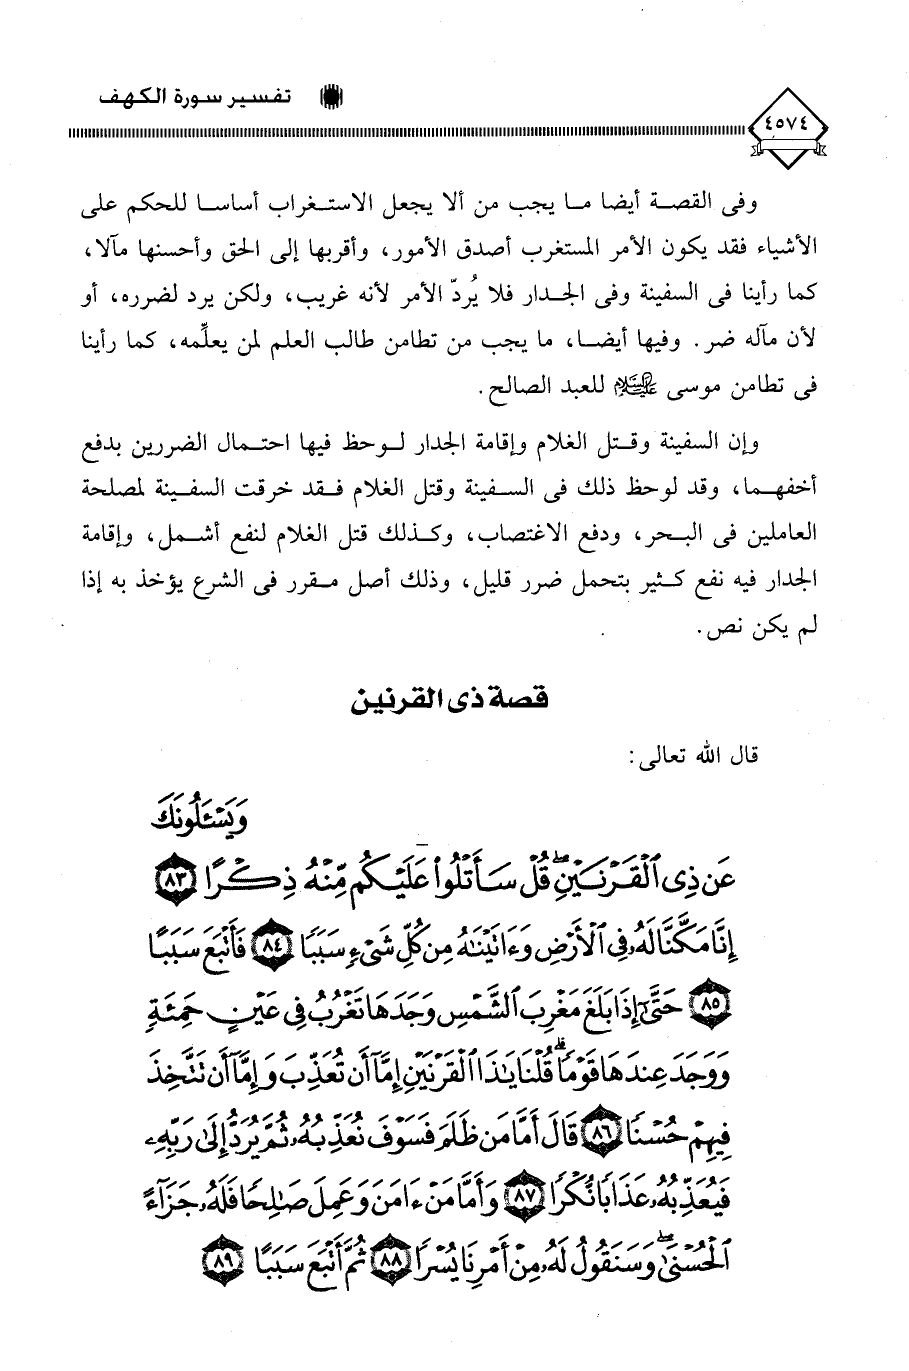 تفسير سورة الكهف
٤٥٧٤
وفى القصة أيضا ما يجب من ألا يجعل الاستغراب أساسا للحكم على
الأشياء فقد يكون الأمر المستغرب أصدق الأمور، وأقربها إلى الحق وأحسنها مآلا،
كما رأينا فى السفينة وفى الجدار فلا يُردّ الأمر لأنه غريب، ولكن يرد لضرره، أو
لأن مآله ضر. وفيها أيضا، ما يجب من تطامن طالب العلم لمن يعلِّمه، كما رأينا
فى تطامن موسى عليه السلام للعبد الصالح.
وإن السفينة وقتل الغلام وإقامة الجدار لوحظ فيها احتمال الضررين بدفع
أخفهما، وقد لوحظ ذلك فى السفينة وقتل الغلام فقد خرقت السفينة لمصلحة
العاملين فى البحر، ودفع الاغتصاب، وكذلك قتل الغلام لنفع أشمل، وإقامة
الجدار فيه نفع كثير بتحمل ضرر قليل، وذلك أصل مقرر فى الشرع يؤخذ به إذا
لم يكن نص.
قصة ذى القرنين
قال الله تعالى:
وَيَسْـَٔلُونَكَ
عَن ذِى ٱلْقَرْنَيْنِ ۖ قُلْ سَأَتْلُوا۟ عَلَيْكُم مِّنْهُ ذِكْرًا ٨٣
إِنَّا مَكَّنَّا لَهُۥ فِى ٱلْأَرْضِ وَءَاتَيْنَٰهُ مِن كُلِّ شَىْءٍ سَبَبًا ٨٤ فَأَتْبَعَ سَبَبًا
٨٥ حَتَّىٰٓ إِذَا بَلَغَ مَغْرِبَ ٱلشَّمْسِ وَجَدَهَا تَغْرُبُ فِى عَيْنٍ حَمِئَةٍ
وَوَجَدَ عِندَهَا قَوْمًا ۗ قُلْنَا يَٰذَا ٱلْقَرْنَيْنِ إِمَّآ أَن تُعَذِّبَ وَإِمَّآ أَن تَتَّخِذَ
فِيهِمْ حُسْنًا ٨٦ قَالَ أَمَّا مَن ظَلَمَ فَسَوْفَ نُعَذِّبُهُۥ ثُمَّ يُرَدُّ إِلَىٰ رَبِّهِۦ
فَيُعَذِّبُهُۥ عَذَابًا نُّكْرًا ٨٧ وَأَمَّا مَنْ ءَامَنَ وَعَمِلَ صَٰلِحًا فَلَهُۥ جَزَآءً
ٱلْحُسْنَىٰ ۖ وَسَنَقُولُ لَهُۥ مِنْ أَمْرِنَا يُسْرًا ٨٨ ثُمَّ أَتْبَعَ سَبَبًا ٨٩